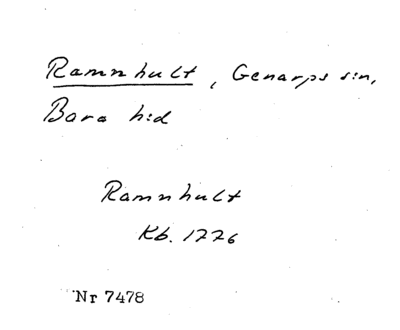 Ramnhult, Genarps sn,
Bara hd
Ramnhult
Kb. 1776
Nr 7478